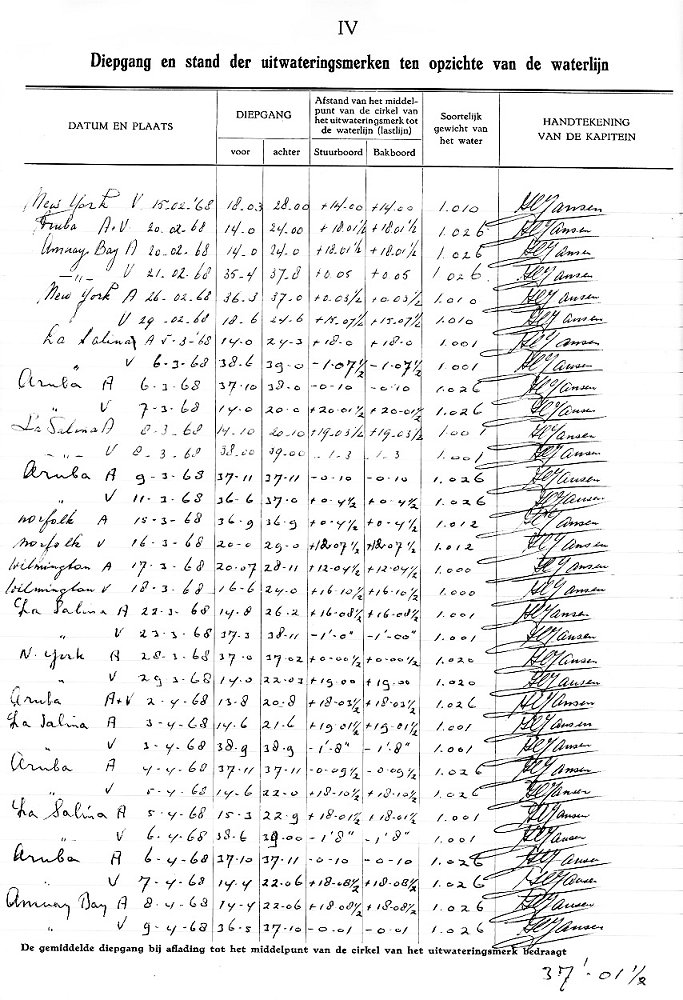 IV
Diepgang en stand der uitwateringsmerken ten opzichte van de waterlijn
DATUM EN PLAATS
DIEPGANG
voor achter
Afstand van het middel-
punt van de cirkel van
het uitwateringsmerk tot
de waterlijn (lastlijn)
Stuurboord Bakboord
Soortelijk
gewicht van
het water
HANDTEKENING
VAN DE KAPITEIN
New York V 15-02-'68 18.03 28.00 +14.00 +14.00 1.010 HCJansen
Aruba A+V 20-02-68 14.0 24.00 +18.01½ +18.01½ 1.026 HCJansen
Amuay Bay A 20-02-68 14.0 24.0 +18.01½ +18.01½ 1.026 HCJansen
-"- V 21-02-68 35-4 37.8 +0.05 +0.05 1.026 HCJansen
New York A 26-02-68 36.3 37.0 +0.03½ +0.03½ 1.010 HCJansen
" V 29-02-68 18-6 24.6 +15.07½ +15.07½ 1.010 HCJansen
La Salina A 5-3-'68 14.0 24-3 +18-0 +18.0 1.001 HCJansen
" V 6-3-68 38.6 39-0 -1.07½ -1.07½ 1.001 HCJansen
Aruba A 6-3-68 37-10 38-0 -0-10 -0-10 1.026 HCJansen
" V 7-3-68 14-0 20-0 +20-01½ +20-01½ 1.026 HCJansen
La Salina A 8-3-68 14-10 20-10 +19-03½ +19-03½ 1.001 HCJansen
" V 8-3-68 38.00 39.00 -1-3 -1-3 1.001 HCJansen
Aruba A 9-3-68 37-11 37-11 -0-10 -0-10 1.026 HCJansen
" V 11-3-68 36-6 37-0 +0-4½ +0-4½ 1.026 HCJansen
Norfolk A 15-3-68 36-9 36-9 +0-4½ +0-4½ 1.012 HCJansen
Norfolk V 16-3-68 20-0 29-0 +12-07½ +12-07½ 1.012 HCJansen
Wilmington A 17-3-68 20-07 28-11 +12-04½ +12-04½ 1.000 HCJansen
Wilmington V 18-3-68 16-6 24-0 +16-10½ +16-10½ 1.000 HCJansen
La Salina A 22-3-68 14-8 26-2 +16-08½ +16-08½ 1.001 HCJansen
" V 23-3-68 37-3 38-11 -1'-0" -1'-00" 1.001 HCJansen
N. York A 28-3-68 37-0 37-02 +0-00½ +0-00½ 1.020 HCJansen
" V 29-3-68 14-0 22-03 +19.00 +19.00 1.020 HCJansen
Aruba A+V 2-4-68 13-8 20-8 +18-03½ +18-03½ 1.026 HCJansen
La Salina A 3-4-68 14-6 21-6 +19-01½ +19-01½ 1.001 HCJansen
" V 3-4-68 38-9 38-9 -1'-8" -1'-8" 1.001 HCJansen
Aruba A 4-4-68 37-11 37-11 -0-09½ -0-09½ 1.026 HCJansen
" V 5-4-68 14-6 22-0 +18-10½ +18-10½ 1.026 HCJansen
La Salina A 5-4-68 15-3 22-9 +18-01½ +18-01½ 1.001 HCJansen
" V 6-4-68 38-6 39-00 -1'8" -1'8" 1.001 HCJansen
Aruba A 6-4-68 37-10 37-11 -0-10 -0-10 1.026 HCJansen
" V 7-4-68 14-4 22-06 +18-08½ +18-08½ 1.026 HCJansen
Amuay Bay A 8-4-68 14-4 22-06 +18-08½ +18-08½ 1.026 HCJansen
" V 9-4-68 36-5 37-10 -0-01 -0-01 1.026 HCJansen
De gemiddelde diepgang bij aflading tot het middelpunt van de cirkel van het uitwateringsmerk bedraagt
37'-01½